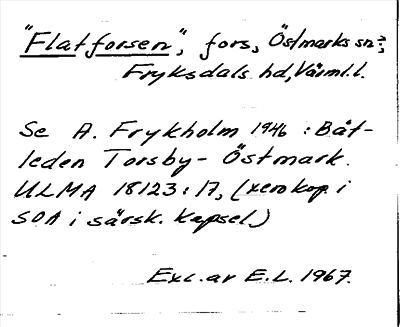 "Flatforsen", fors, Östmarks sn?,
Fryksdals hd, Värml. l.
Se A. Frykholm 1946: Båt-
leden Torsby - Östmark.
ULMA 18123:17, (xerokop. i
SOA i särsk. kapsel.)
Exc. av E.L. 1967.